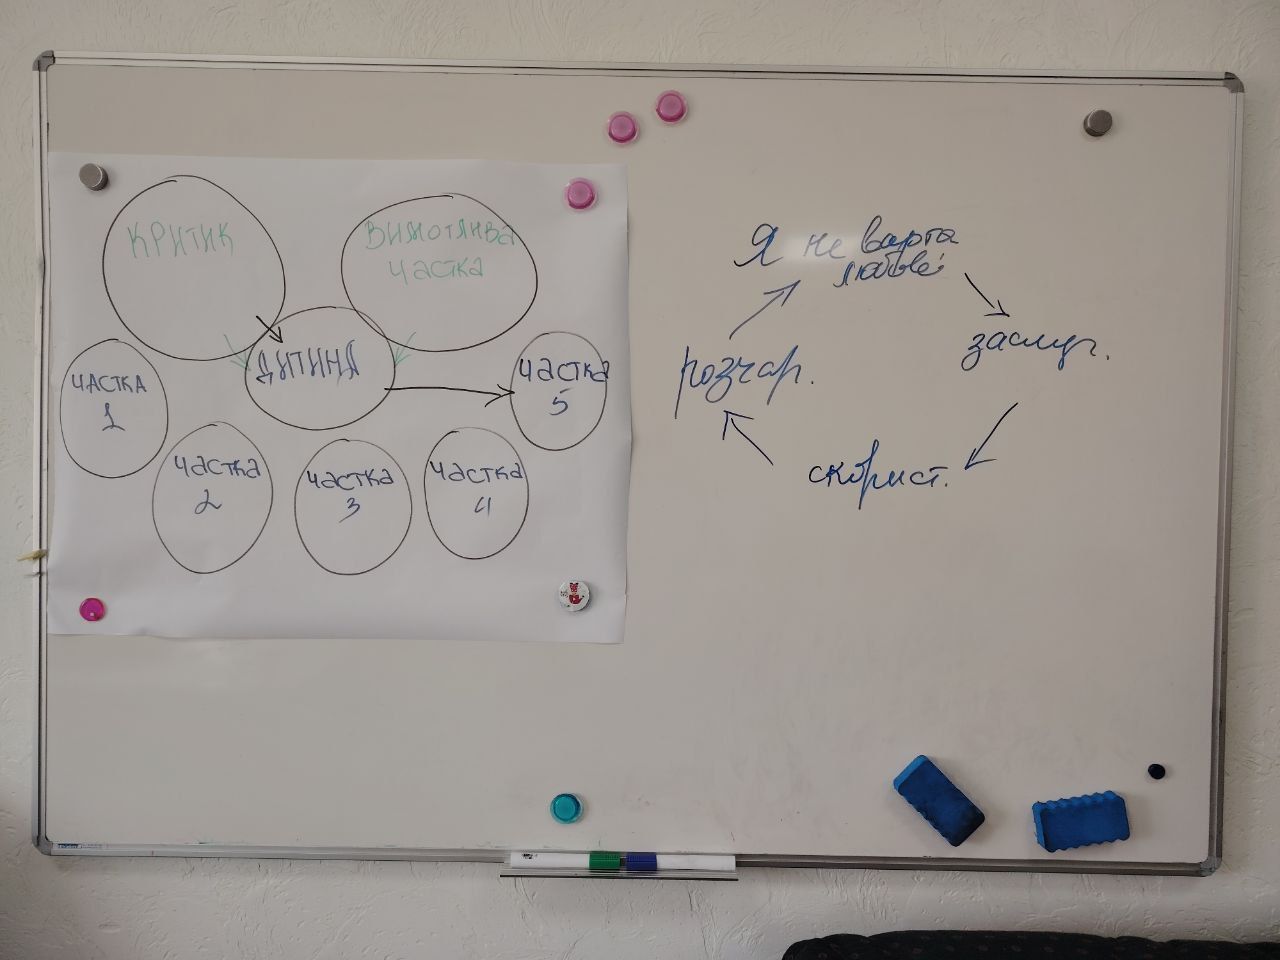 КРИТИК
ВИМОТЛИВА
ЧАСТКА
ДИТИНА
ЧАСТКА
1
ЧАСТКА
2
ЧАСТКА
3
ЧАСТКА
4
ЧАСТКА
5
Я не варта
любові
заслуг.
скорист.
розчар.